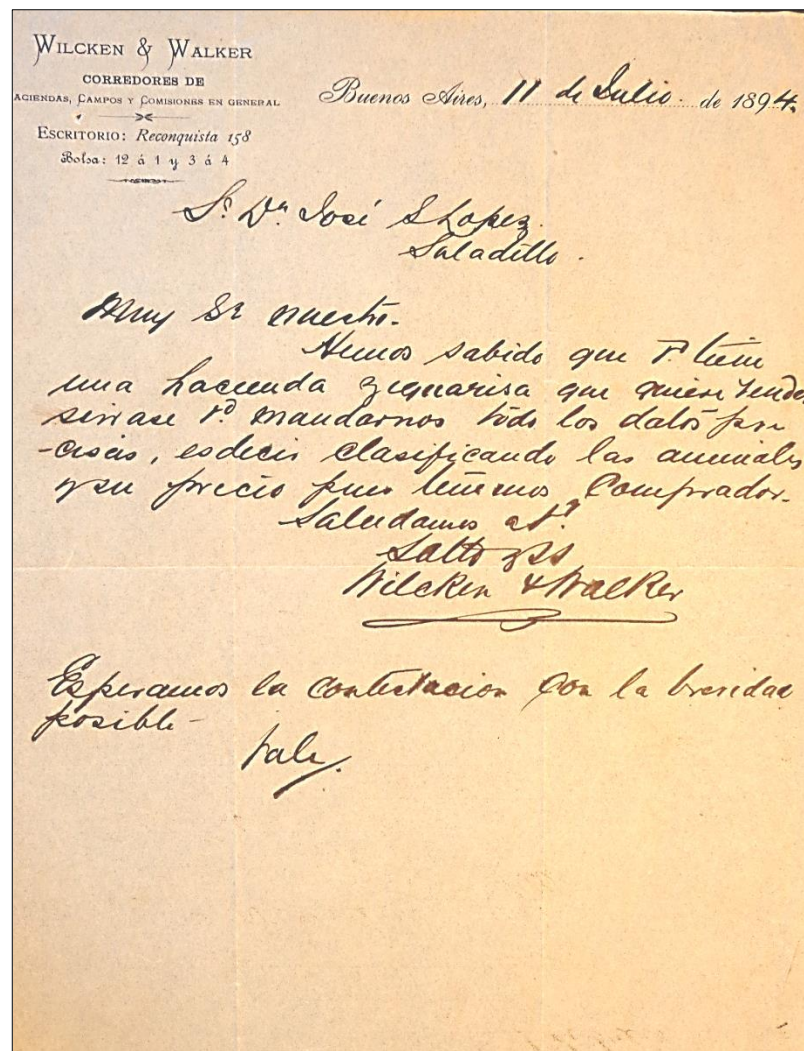 WILCKEN & WALKER
CORREDORES DE
ACIENDAS, CAMPOS Y COMISIONES EN GENERAL
ESCRITORIO: Reconquista 158
Bolsa: 12 á 1 y 3 á 4
Buenos Aires, 11 de Julio de 1894.
Sr. Dn José S Lopez.
Saladillo.
Muy Sr nuestro.
Hemos sabido que Vd. tiene
una hacienda yeguarisa que quiere vender
sirvase Vd. mandarnos todo los datos pre
-cisos, es decir clasificando los animales
y su precio pues tenemos Comprador.
Saludamos a Vd.
SS
Wilcken & Walker
Esperamos la contestacion con la brevidad
posible -
Vale.